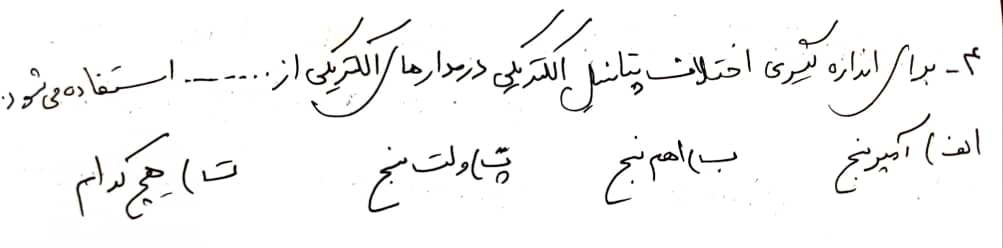 ۴- برای اندازه گیری اختلاف پتانسیل الکتریکی در مدارهای الکتریکی از ....... استفاده می‌شود.
الف) آمپرسنج ب) اهم سنج پ) ولت سنج ت) هیچ کدام